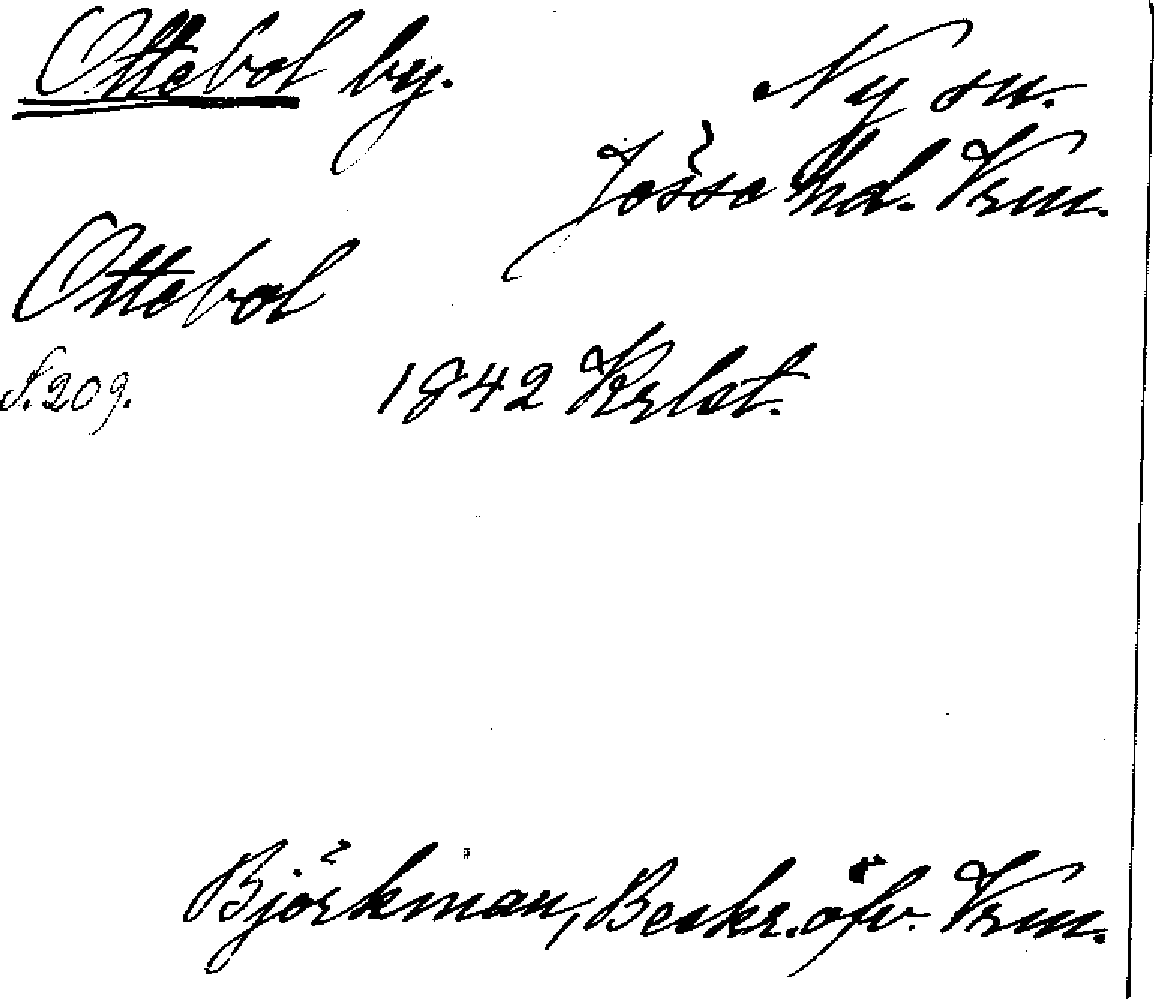 Ottebol by.
Ny sn.
Jösse hd. Vrm.
Ottebol
S. 209.
1842 Krlst.
Björkman, Beskr. öfv. Vrm.